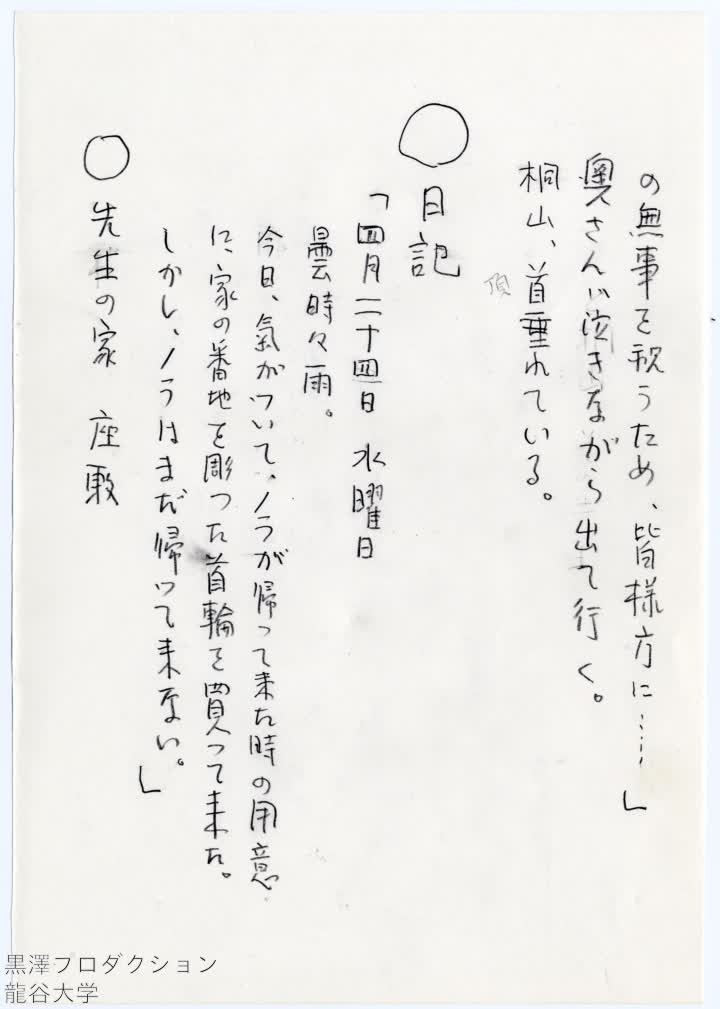 の無事を祝うため、皆様方に……」
奥さん、泣きながら出て行く。
桐山、首垂れている。
頂
○日記
「四月二十四日　水曜日
曇時々雨。
今日、氣がついて、ノラが帰って来た時の用意
に、家の番地を彫った首輪を買って来た。
しかし、ノラはまだ帰って来ない。」
○先生の家　座敷
黒澤プロダクション
龍谷大学